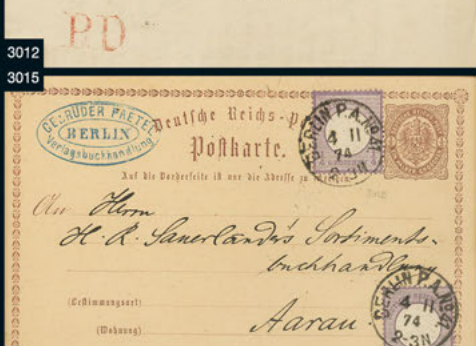 PD
3012
3015
GEBRÜDER PAETEL
BERLIN
Verlagsbuchhandlung
Deutsche Reichs-P
Postkarte.
BERLIN P.A. No 41
4 11
74
2-3N
Auf die Vorderseite ist nur die Adresse zu
An Herrn
H. R. Sauerländer's Sortiments-
buchhandlung
(Bestimmungsort)
Aarau
(Wohnung)
BERLIN P.A. No 41
4 11
74
2-3N